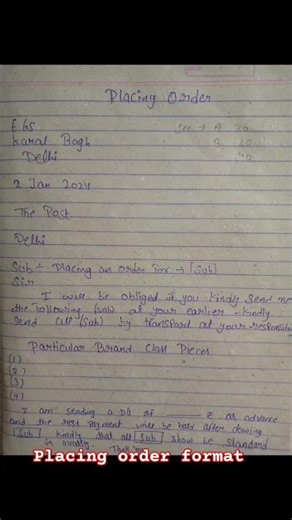 Placing Order
E 65
Karol Bagh
Delhi
2 Jan 2024
The Past
Delhi
Sub ÷ Placing an order for → [Sub]
Sir
I will be obliged if you kindly send me
the following (sub) at your earlier kindly
Send all (Sub) by transpord at your responsi
Particular Brand Class Pieces
(1)
(2)
(3)
(4)
I am sending a D/d of ₹ as advance
and the rest payment will be paid after
[Sub] kindly that all [Sub] show be Standard
in quality.
Placing order format